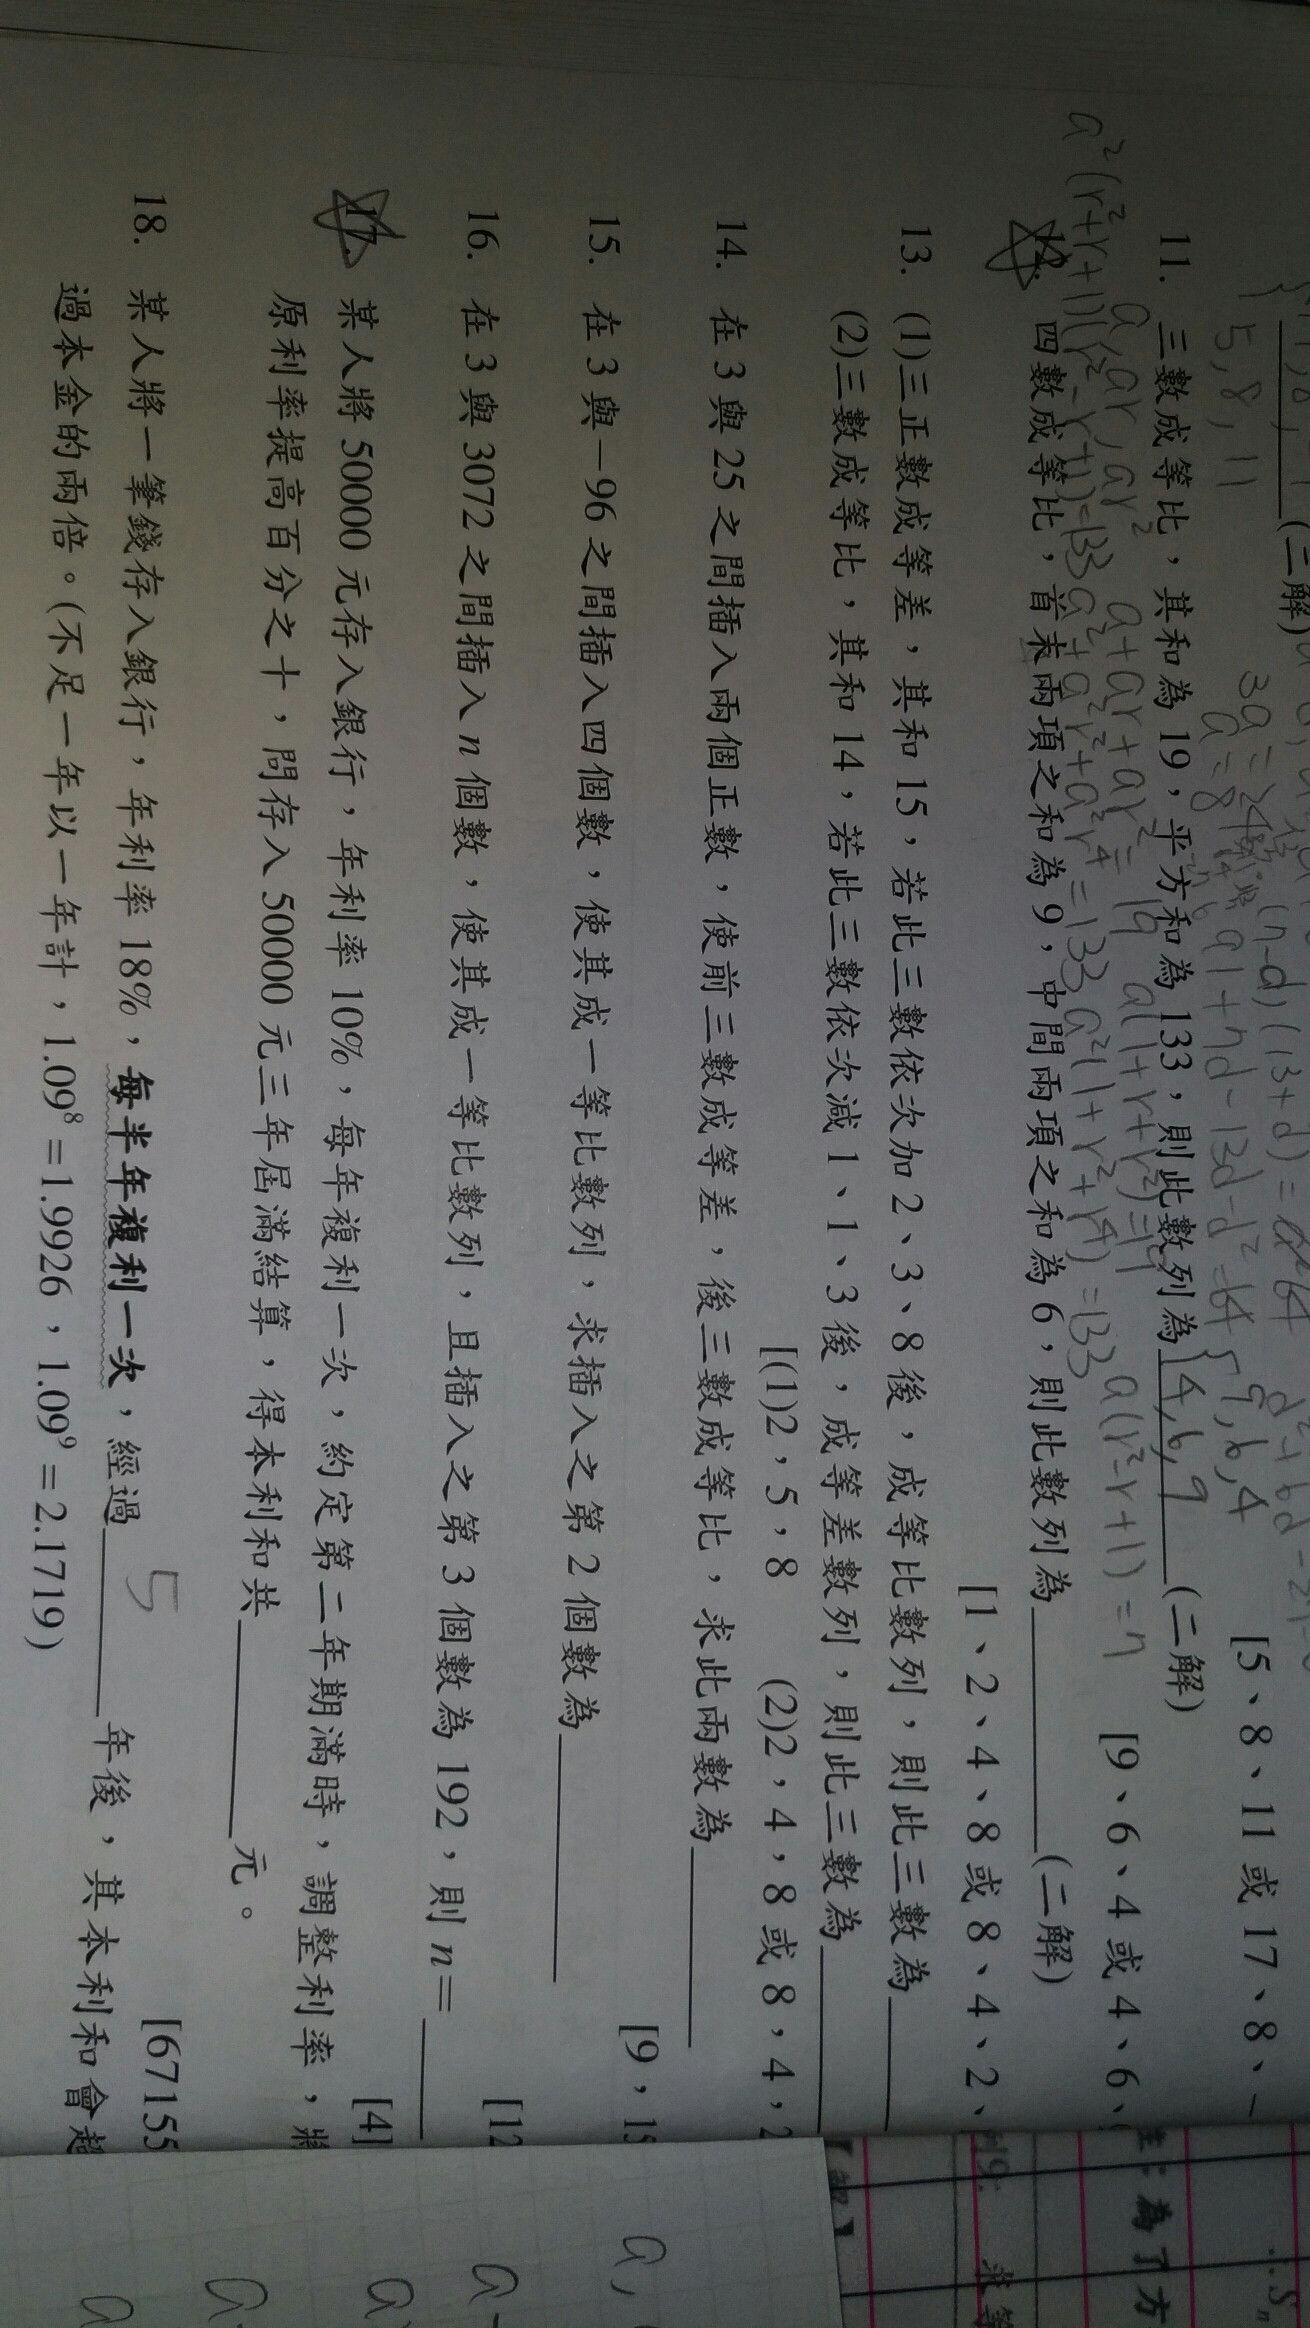 (二解)
3a=24
5,8,11
a=8
9,6,4
[5、8、11 或 17、8、-
11. 三數成等比，其和為 19，平方和為 133，則此數列為 4,6,9 (二解)
a, ar, ar² a+ar+ar²=19 a(1+r+r²)=19 a(r²-r+1)=7
[9、6、4 或 4、6、
a²(r²+r+1)(r²-r+1)=133 a²+a²r²+a²r⁴=133 a²(1+r²+r⁴)=133
12. 四數成等比，首末兩項之和為 9，中間兩項之和為 6，則此數列為 (二解)
[1、2、4、8 或 8、4、2、
13. (1)三正數成等差，其和 15，若此三數依次加 2、3、8 後，成等比數列，則此三數為
(2)三數成等比，其和 14，若此三數依次減 1、1、3 後，成等差數列，則此三數為
[(1)2，5，8 (2)2，4，8 或 8，4，2
14. 在 3 與 25 之間插入兩個正數，使前三數成等差，後三數成等比，求此兩數為
[9，15
15. 在 3 與-96 之間插入四個數，使其成一等比數列，求插入之第 2 個數為
[12
16. 在 3 與 3072 之間插入 n 個數，使其成一等比數列，且插入之第 3 個數為 192，則 n=
[4]
17. 某人將 50000 元存入銀行，年利率 10%，每年複利一次，約定第二年期滿時，調整利率，將
原利率提高百分之十，問存入 50000 元三年屆滿結算，得本利和共 元。
[67155
18. 某人將一筆錢存入銀行，年利率 18%，每半年複利一次，經過 5 年後，其本利和會超
過本金的兩倍。(不足一年以一年計，1.09⁸=1.9926，1.09⁹=2.1719)
例9:
求等
註:為了方
∴Sn
a,
a
a
a
a